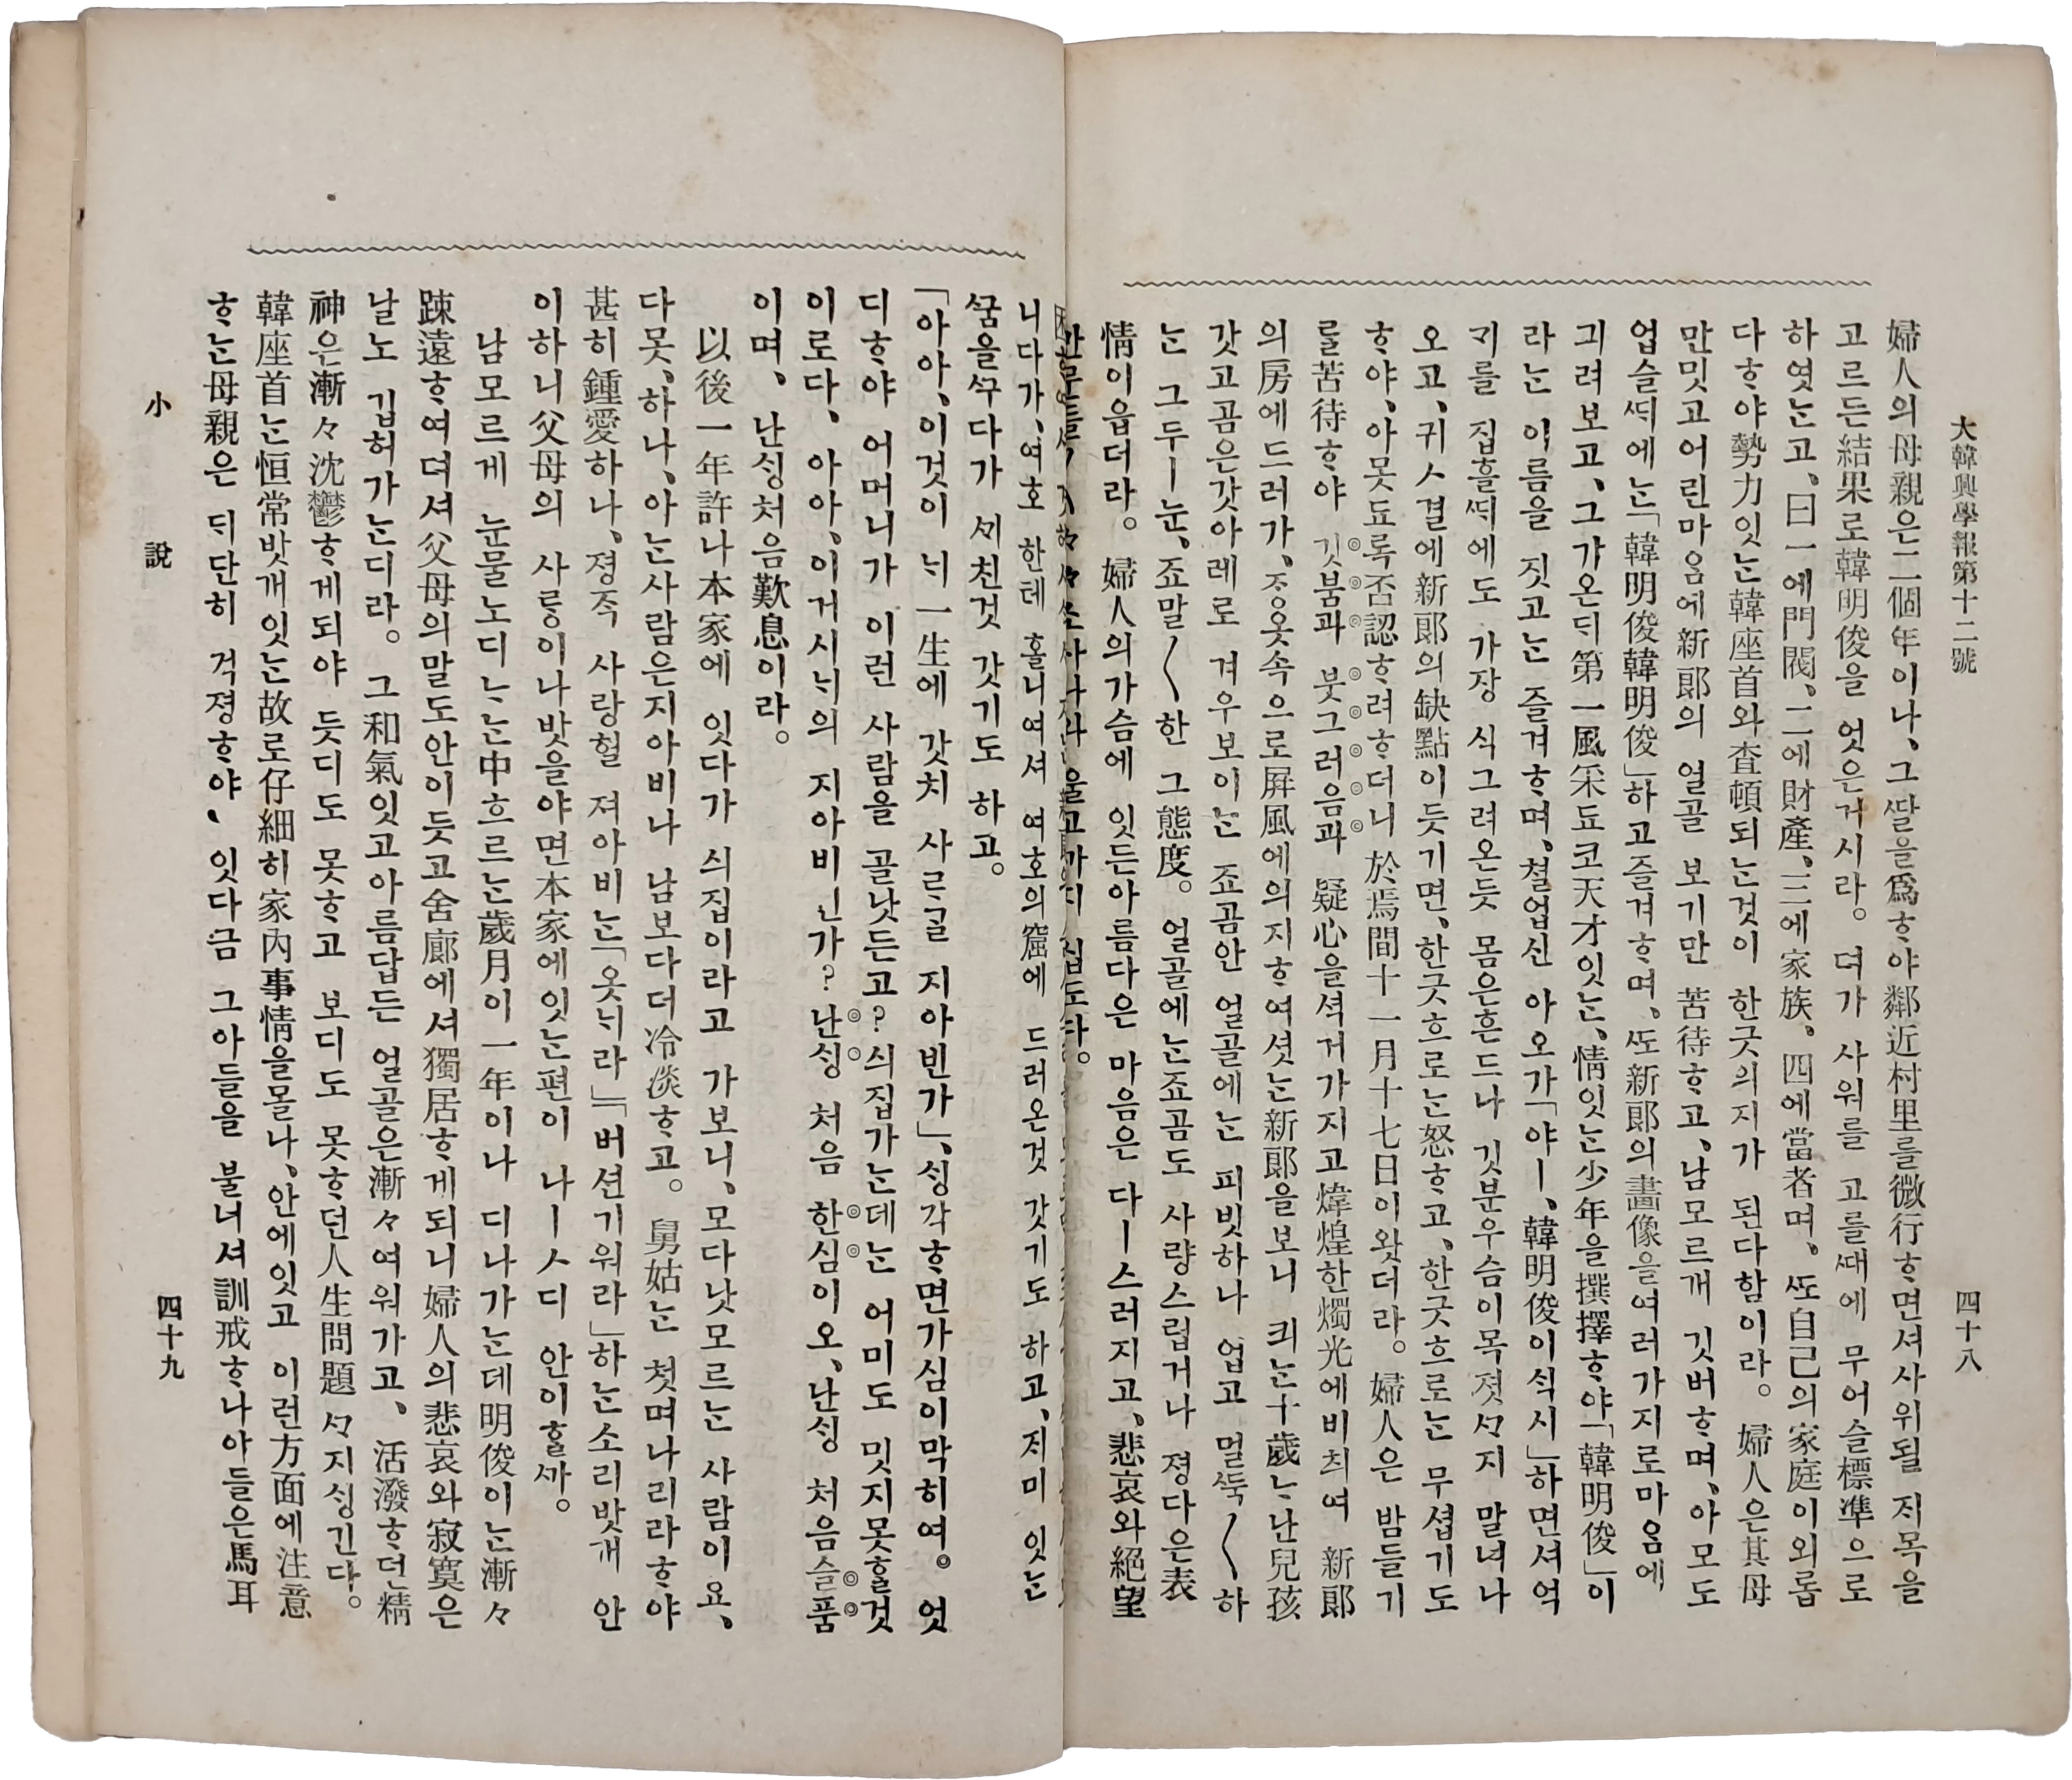 大韓興學報第十二號
四十八
婦人의母親은二個年이나、그ᄯᅡᆯ을爲ᄒᆞ야鄰近村里를微行ᄒᆞ면셔사위될 ᄌᆡ목을
고르든結果로韓明俊을 엇은거시라。 뎌가 사위를 고를ᄯᅢ에 무어슬標準으로
하엿ᄂᆞᆫ고、曰一에門閥、二에財產、三에家族。四에當者며、ᄯᅩ自己의家庭이외롭
다ᄒᆞ야勢力잇ᄂᆞᆫ韓座首와査頓되ᄂᆞᆫ것이 한긋의지가 된다함이라。 婦人은其母
만밋고어린마음에新郞의 얼골 보기만 苦待ᄒᆞ고、남모르개 깃버ᄒᆞ며、아모도
업슬ᄯᅴ에ᄂᆞᆫ「韓明俊韓明俊」하고즐겨ᄒᆞ며、ᄯᅩ新郞의畵像을여러가지로마음에
긔려보고、그가온ᄃᆡ第一風采됴코天才잇ᄂᆞᆫ、情잇ᄂᆞᆫ少年을撰擇ᄒᆞ야「韓明俊」이
라ᄂᆞᆫ 이름을 짓고ᄂᆞᆫ 즐겨ᄒᆞ며、쳘업신 아오가「야ㅣ、韓明俊이ᄉᆡᆨ시」하면셔역
긔를 집흘ᄯᅴ에도 가쟝 식그려온듯 몸은흔드나 깃분우슴이목졋ᄭᆞ지 말녀나
오고、귀ㅅ결에新郞의缺點이듯기면、한긋흐로ᄂᆞᆫ怒ᄒᆞ고、한긋흐로ᄂᆞᆫ 무셥기도
ᄒᆞ야、아못됴록否認ᄒᆞ려ᄒᆞ더니 於焉間十一月十七日이왓더라。 婦人은 밤들기
를苦待ᄒᆞ야 깃붐과 붓그러음과 疑心을셕거가지고煒煌한燭光에비최여 新郞
의房에드러가、죵옷속으로屛風에의지ᄒᆞ여셧ᄂᆞᆫ新郞을보니 킈ᄂᆞᆫ十歲ᄂᆞᆫ난兒孩
갓고곰은갓아레로 겨우보이ᄂᆞᆫ 죠곰안 얼골에ᄂᆞᆫ 피빗하나 업고 멀ᄯᅮᆨ〱하
ᄂᆞᆫ 그두ㅣ눈、죠말〱한 그態度。 얼골에ᄂᆞᆫ죠곰도 사량스럽거나 졍다은表
情이읍더라。 婦人의가슴에 잇든아름다은 마음은 다ㅣ스러지고、悲哀와絕望
니다가、여호 한테 홀니여셔 여호의窟에 드러온것 갓기도 하고、ᄌᆡ미 잇ᄂᆞᆫ
ᄭᅮᆷ을ᄭᅮ다가 ᄭᆡ친것 갓기도 하고。
「아아、이것이 ᄂᆡ一生에 갓치 사ᄅᆞᆯ 지아빈가」、ᄉᆡᆼ각ᄒᆞ면가심이막히여。엇
디ᄒᆞ야 어머니가 이런 사람을 골낫든고?싀집가ᄂᆞᆫ데ᄂᆞᆫ 어미도 밋지못ᄒᆞᆯ것
이로다、아아、이거시ᄂᆡ의 지아비ᄂᆞᆫ가?난ᄉᆡᆼ 처음 한심이오、난ᄉᆡᆼ 처음슬품
이며、난ᄉᆡᆼ처음歎息이라。
以後一年許나本家에 잇다가 싀집이라고 가보니、모다낫모르ᄂᆞᆫ 사람이요、
다못、하나、아ᄂᆞᆫ사람은지아비나 남보다더冷淡ᄒᆞ고。 舅姑ᄂᆞᆫ 쳣며나리라ᄒᆞ야
甚히鍾愛하나、졍죽 사랑헐 져아비ᄂᆞᆫ「옷ᄂᆡ라」「버션기워라」하ᄂᆞᆫ소리밧개 안
이하니父母의 사릉이나밧을야면本家에잇ᄂᆞᆫ편이 나ㅣㅅ디 안이ᄒᆞᆯᄭᅡ。
남모르게 눈물노디ᄂᆞᆫ中흐르ᄂᆞᆫ歲月이一年이나 디나가ᄂᆞᆫ데明俊이ᄂᆞᆫ漸々
踈遠ᄒᆞ여뎌셔父母의말도안이듯고舍廊에셔獨居ᄒᆞ게되니婦人의悲哀와寂寞은
날노 깁허가ᄂᆞᆫ디라。 그和氣잇고아름답든 얼골은漸々여워가고、活潑ᄒᆞ던精
神은漸々沈鬱ᄒᆞ게되야 듯디도 못ᄒᆞ고 보디도 못ᄒᆞ던人生問題ᄭᆞ지ᄉᆡᆼ긴다。
韓座首ᄂᆞᆫ恒常밧개잇ᄂᆞᆫ故로仔細히家內事情을몰나、안에잇고 이런方面에注意
ᄒᆞᄂᆞᆫ母親은 ᄃᆡ단히 걱졍ᄒᆞ야、잇다금 그아들을 불너셔訓戒ᄒᆞ나아들은馬耳
小說
四十九